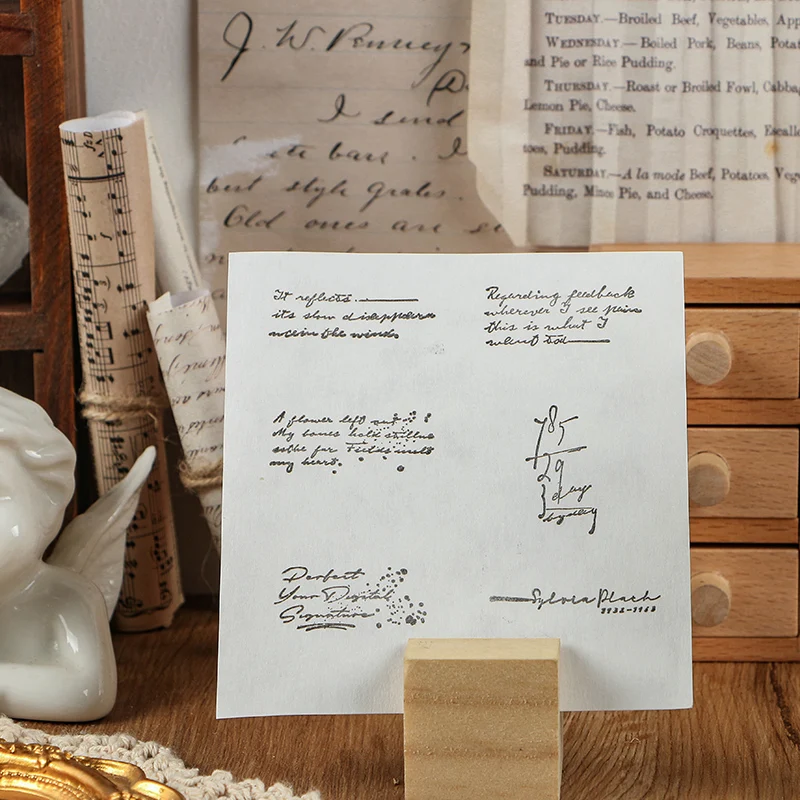 J. W. Penney
I send
bars. I
but style grates.
Old ones are
TUESDAY.—Broiled Beef, Vegetables, App
WEDNESDAY.—Boiled Pork, Beans, Potat
and Pie or Rice Pudding.
THURSDAY.—Roast or Broiled Fowl, Cabbag
Lemon Pie, Cheese.
FRIDAY.—Fish, Potato Croquettes, Escallo
toes, Pudding.
SATURDAY.—A la mode Beef, Potatoes, Vege
Pudding, Mince Pie, and Cheese.
It reflects.
its slow disappeara
nce in the winds
Regarding feedback
wherever I see pains
this is what I
want too
A flower left out
My bones hold stillne
ssthe far Fields melt
my heart.
785
29
3 day
by day
Perfect
Your Digital
Signature
Sylvia Plath
1932-1963